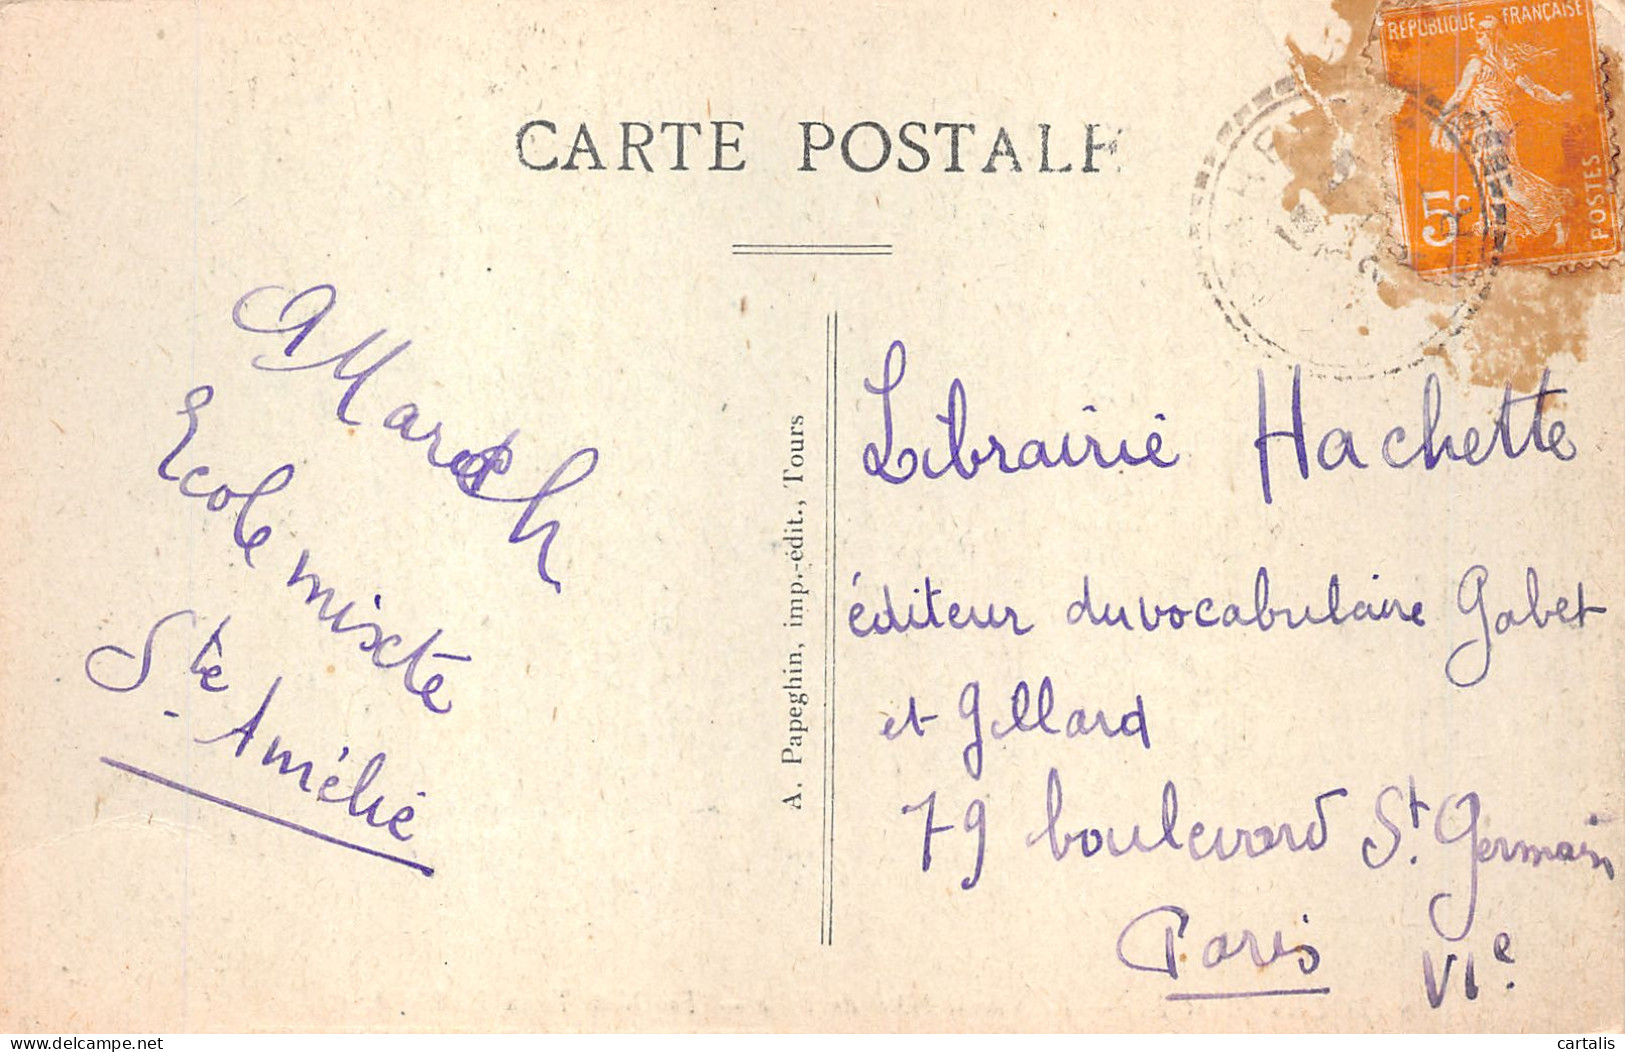 CARTE POSTALE
REPUBLIQUE FRANÇAISE
5c
POSTES
Ecole mixte
Ste Amélie
A. Papeghin, imp.-édit., Tours
Librairie Hachette
éditeur du vocabulaire Gabet
et Gillard
79 boulevard St. Germain
Paris VIe.
delcampe.net
cartalis